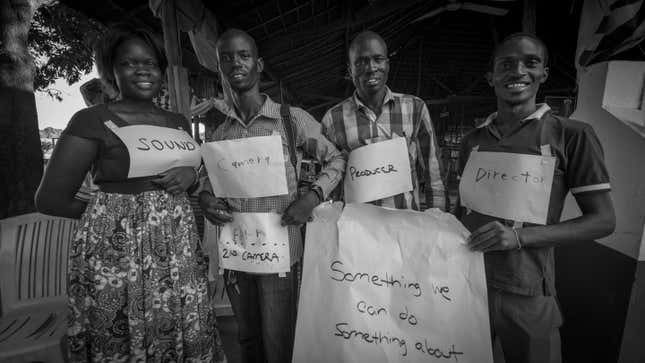 SOUND
Camera
PRODUCER
Director
2ND CAMERA
Something we
can do
Something about